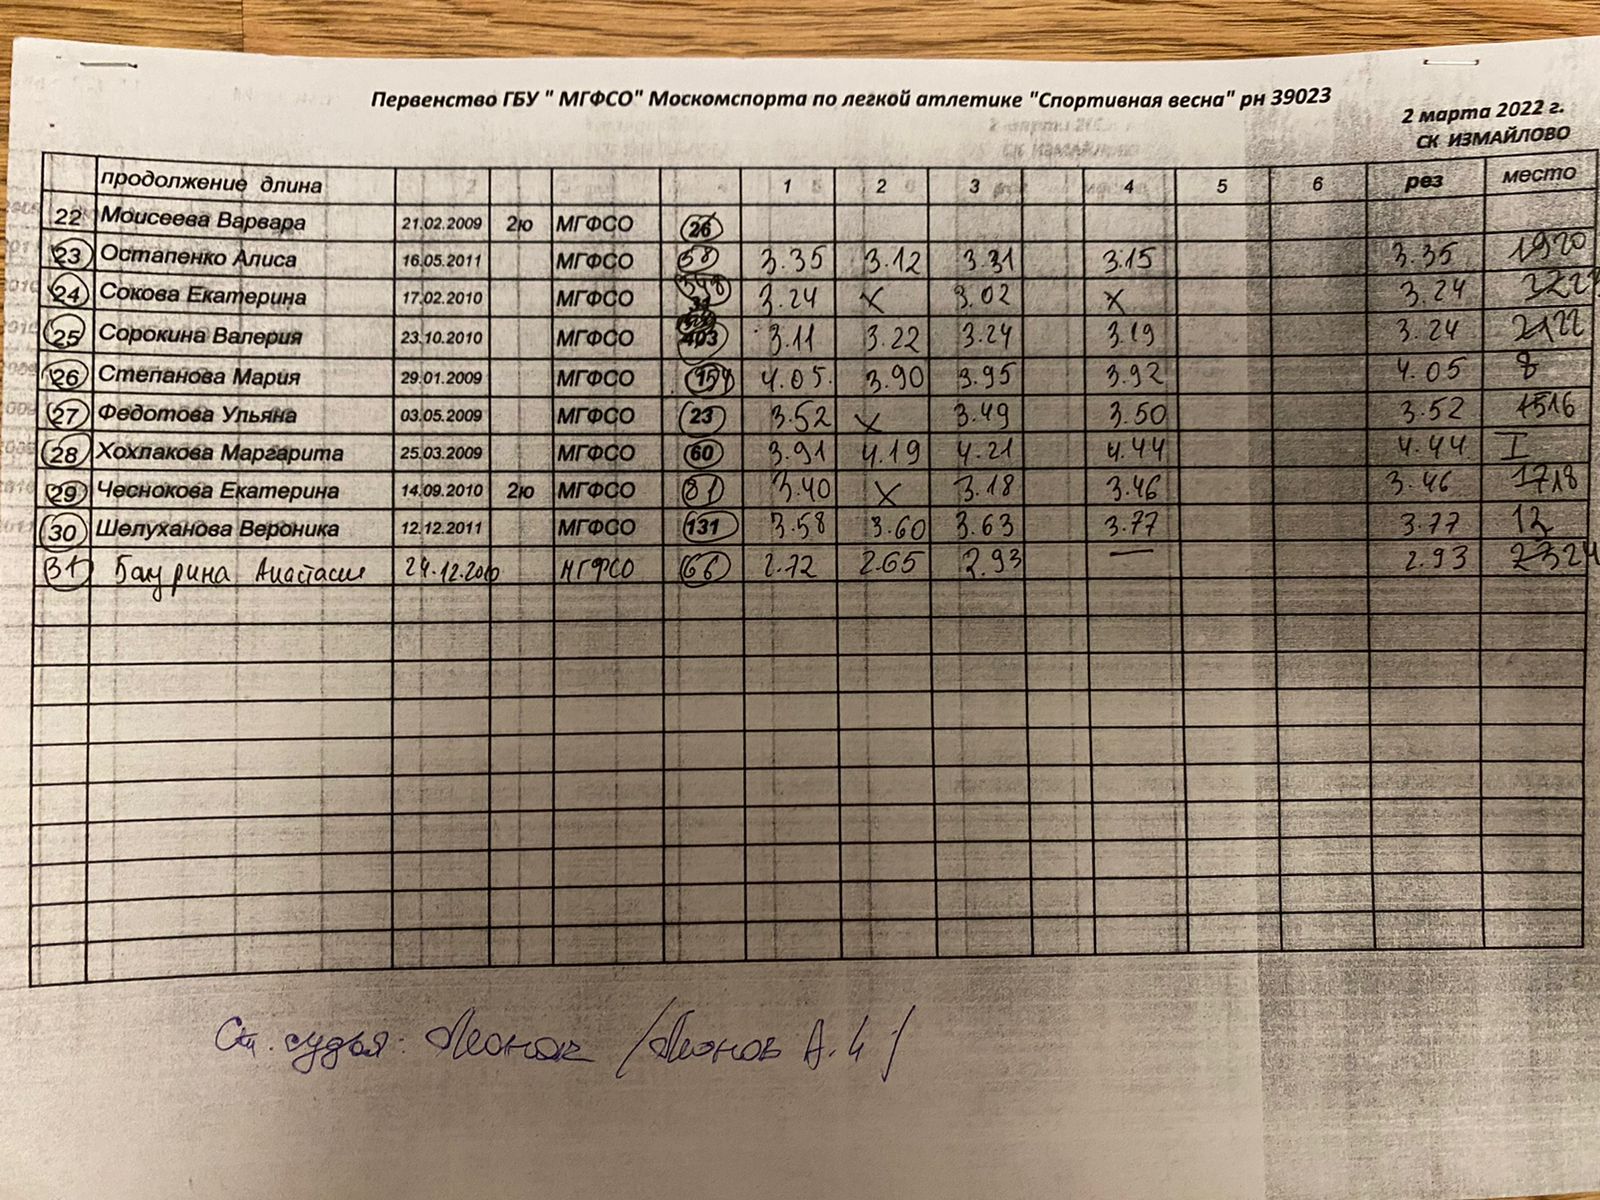 Первенство ГБУ " МГФСО" Москомспорта по легкой атлетике "Спортивная весна" рн 39023
2 марта 2022 г.
СК ИЗМАЙЛОВО
продолжение длина 1 2 3 4 5 6 рез место
22 Моисеева Варвара 21.02.2009 2ю МГФСО 26
23 Остапенко Алиса 16.05.2011 МГФСО 3.35 3.12 3.31 3.15 3.35 20
24 Сокова Екатерина 17.02.2010 МГФСО 3.24 X 3.02 X 3.24
25 Сорокина Валерия 23.10.2010 МГФСО 403 3.11 3.22 3.24 3.19 3.24 22
26 Степанова Мария 29.01.2009 МГФСО 4.05 3.90 3.95 3.92 4.05 8
27 Федотова Ульяна 03.05.2009 МГФСО 23 3.52 X 3.49 3.50 3.52 16
28 Хохлакова Маргарита 25.03.2009 МГФСО 60 3.91 4.19 4.21 4.44 4.44 I
29 Чеснокова Екатерина 14.09.2010 2ю МГФСО 81 3.40 X 3.18 3.46 3.46 18
30 Шелуханова Вероника 12.12.2011 МГФСО 131 3.58 3.60 3.63 3.77 3.77 12
31 Анастасия 24.12.2010 МГФСО 66 2.72 2.65 2.93 — 2.93 24
Ст. судья: /Леонов А.И/